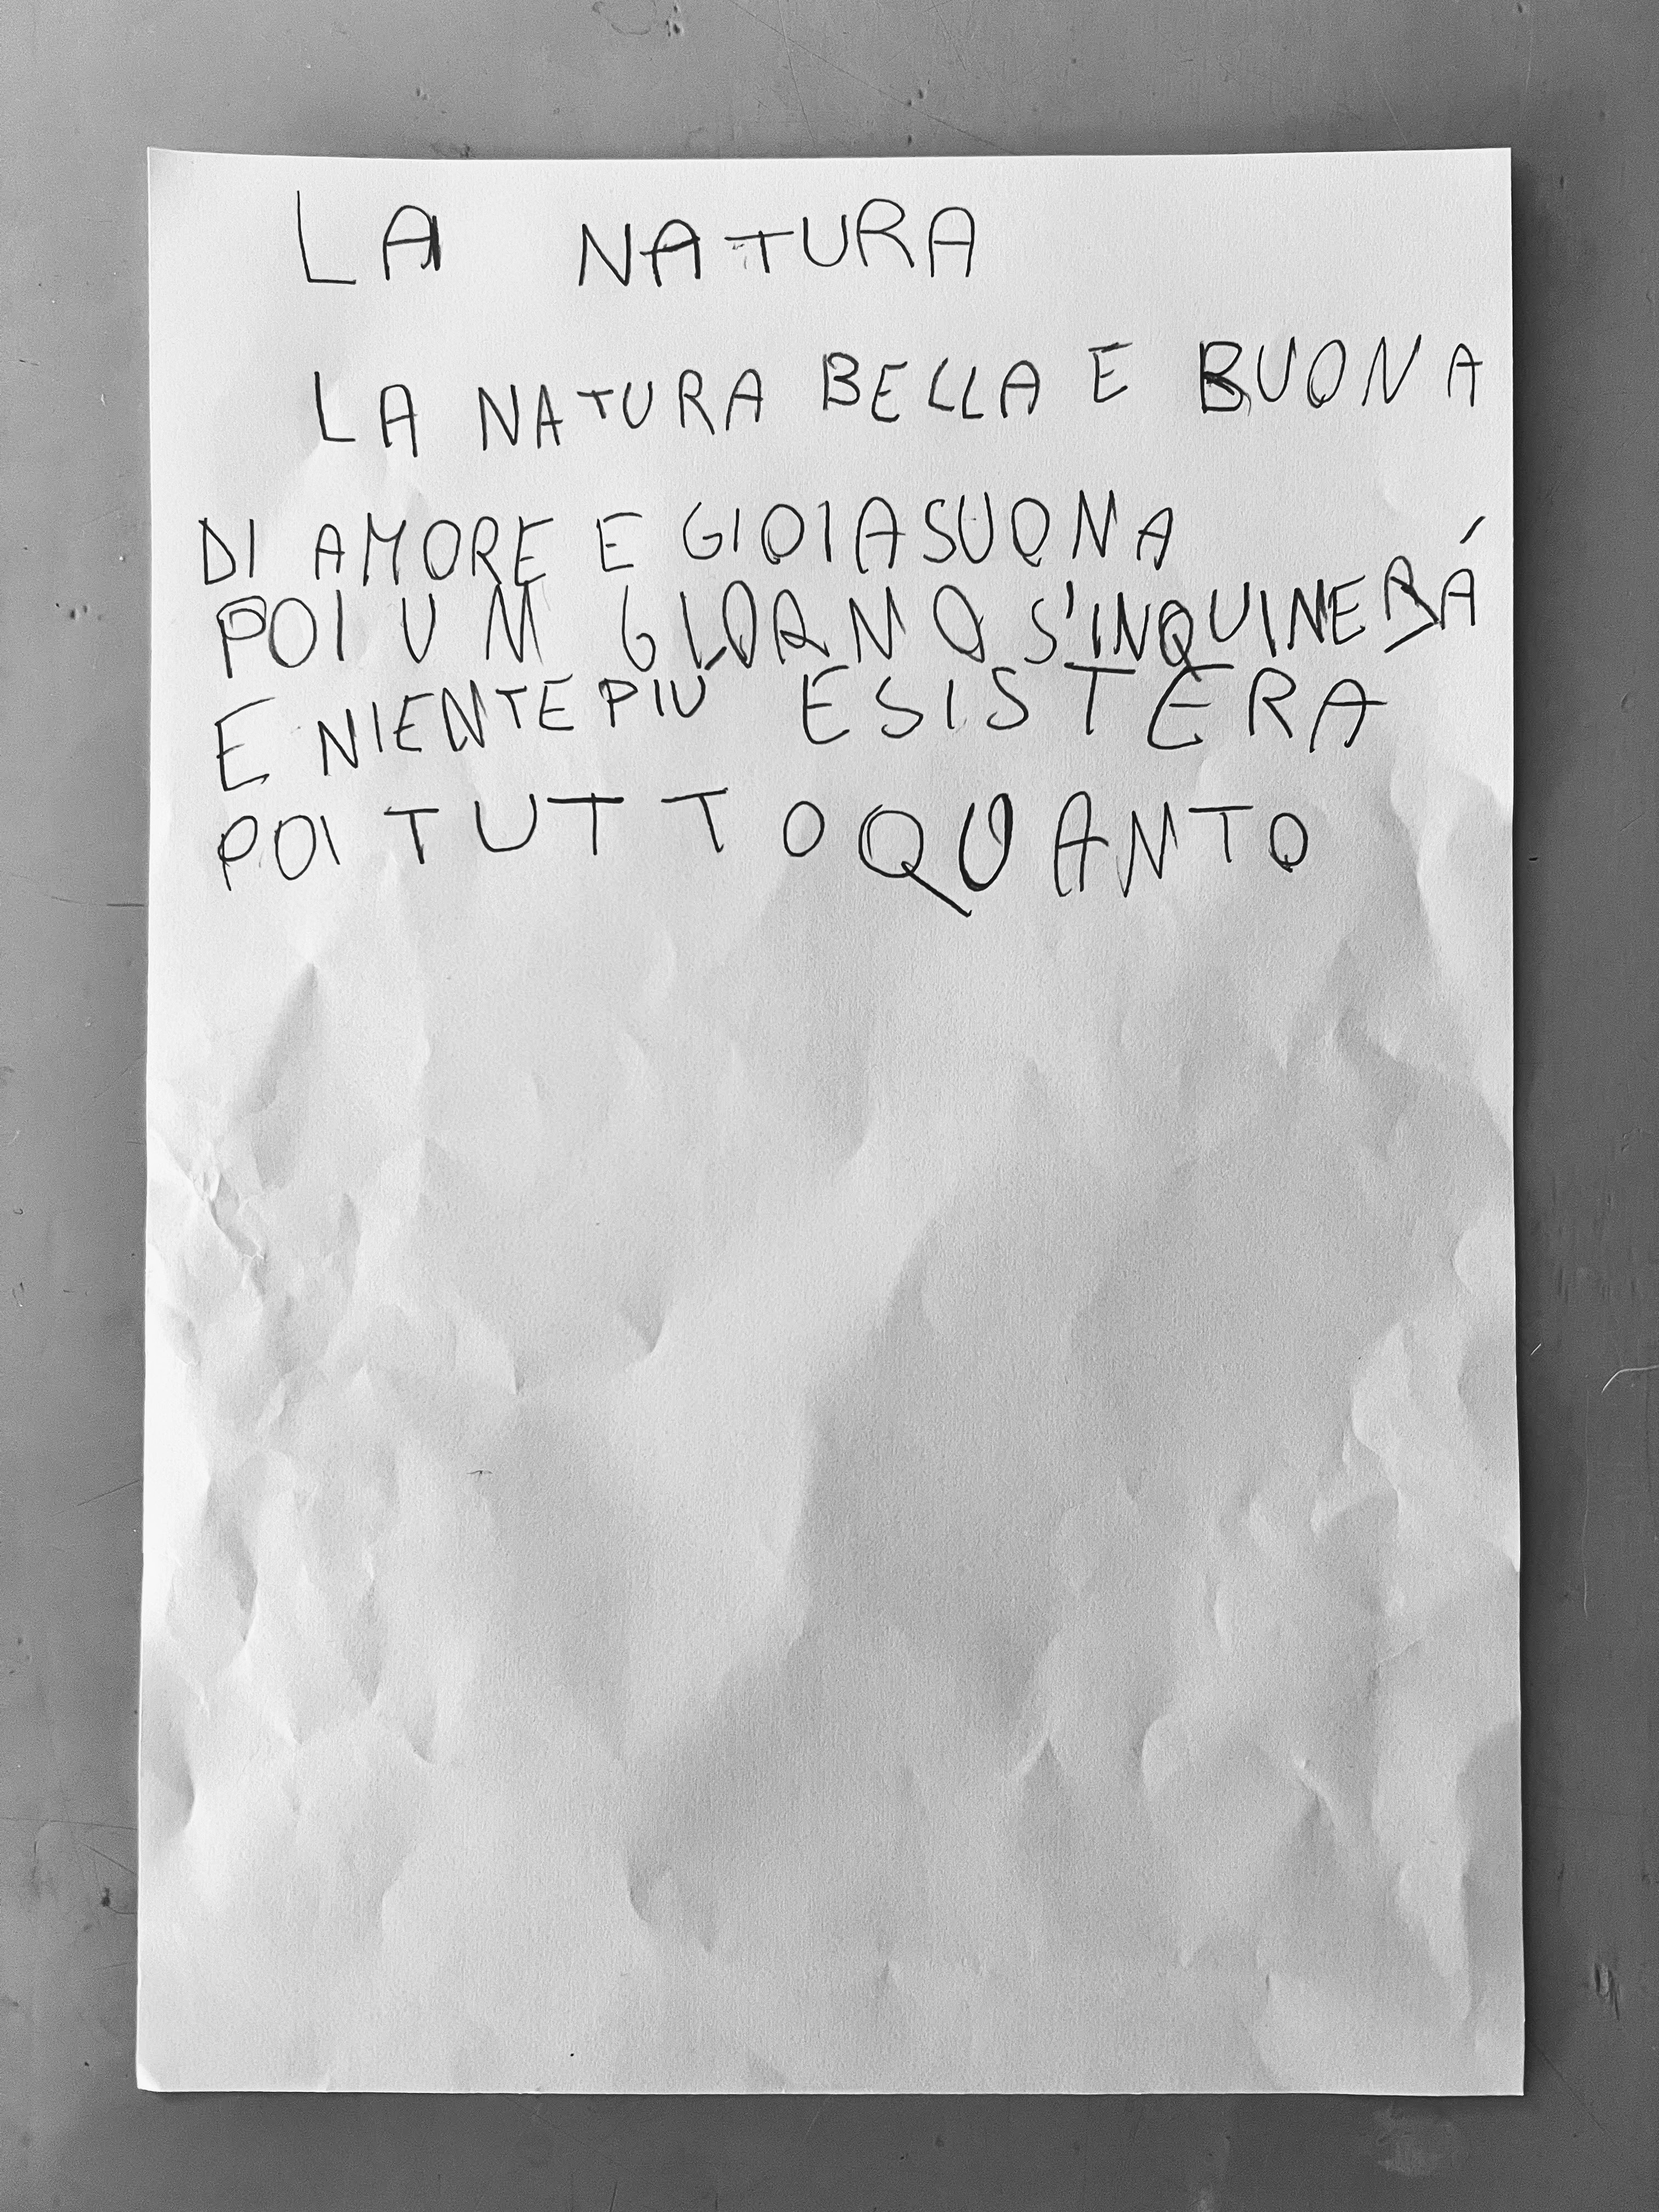 LA NATURA
LA NATURA BELLA E BUONA
DI AMORE E GIOIA SUONA
POI UN GIORNO S'INQUINERÁ
E NIENTE PIÚ ESISTERA
POI TUTTO QUANTO